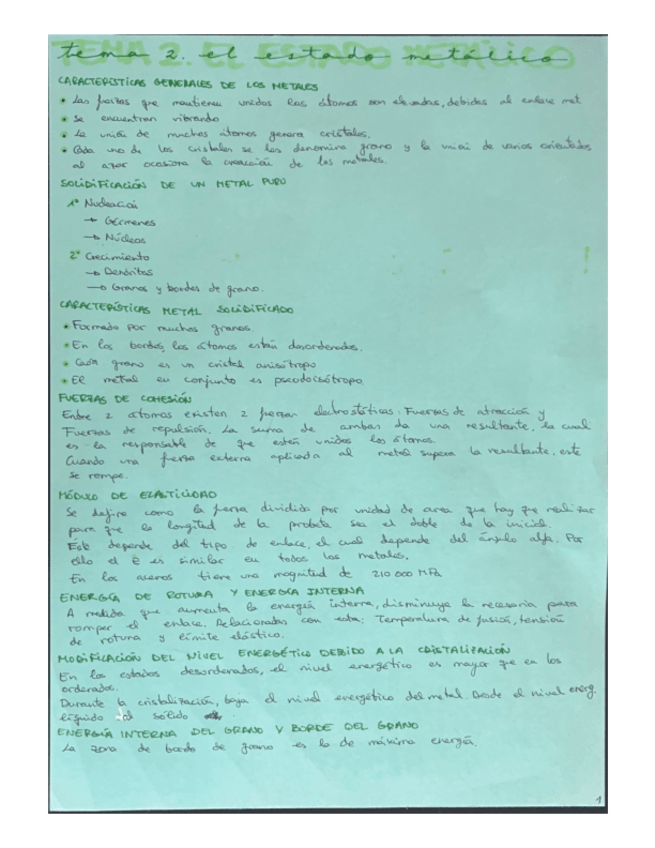 tema 2. el estado metálico
CARACTERÍSTICAS GENERALES DE LOS METALES
• Las fuerzas que mantienen unidos los átomos son elevadas, debidas al enlace met.
• Se encuentran vibrando
• La unión de muchos átomos genera cristales.
• Cada uno de los cristales se les denomina grano y la unión de varios orientados
al azar ocasiona la creación de los metales.
SOLIDIFICACIÓN DE UN METAL PURO
1º Nucleación
→ Gérmenes
→ Núcleos
2º Crecimiento
→ Dendritas
→ Granos y bordes de grano.
CARACTERÍSTICAS METAL SOLIDIFICADO
• Formado por muchos granos.
• En los bordes, los átomos están desordenados.
• Cada grano es un cristal anisótropo
• El metal en conjunto es pseudoisótropo.
FUERZAS DE COHESIÓN
Entre 2 átomos existen 2 fuerzas electrostáticas: Fuerzas de atracción y
Fuerzas de repulsión. La suma de ambas da una resultante, la cual
es la responsable de que estén unidos los átomos.
Cuando una fuerza externa aplicada al metal supera la resultante, este
se rompe.
MÓDULO DE ELASTICIDAD
Se define como la fuerza dividida por unidad de area que hay que realizar
para que la longitud de la probeta sea el doble de la inicial.
Este depende del tipo de enlace, el cual depende del ángulo alfa. Por
ello el E es similar en todos los metales.
En los aceros tiene una magnitud de 210 000 MPa
ENERGÍA DE ROTURA Y ENERGÍA INTERNA
A medida que aumenta la energía interna, disminuye la necesaria para
romper el enlace. Relacionadas con esta: Temperatura de fusión, tensión
de rotura y límite elástico.
MODIFICACIÓN DEL NIVEL ENERGÉTICO DEBIDO A LA CRISTALIZACIÓN
En los estados desordenados, el nivel energético es mayor que en los
ordenados.
Durante la cristalización, baja el nivel energético del metal. Desde el nivel energ.
líquido al sólido
ENERGÍA INTERNA DEL GRANO Y BORDE DEL GRANO
La zona de borde de grano es la de máxima energía.
1